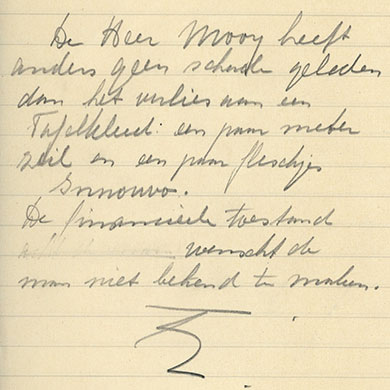 De Heer Mooy heeft
anders geen schade geleden
dan het verlies aan een
Tafelkleed: een paar meter
zeil en een paar fleschjes
De financieele toestand
wenscht de
man niet bekend te maken.